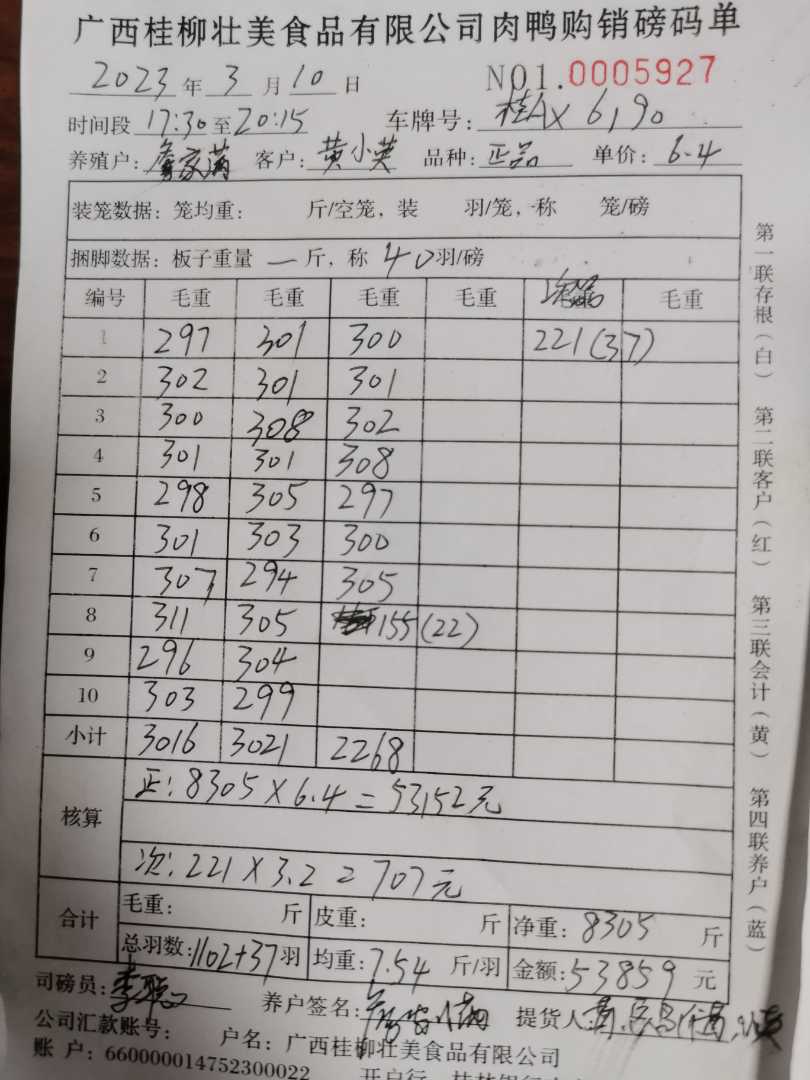 广西桂柳壮美食品有限公司肉鸭购销磅码单
2023 年 3 月 10 日 NO1.0005927
时间段 17:30至20:15 车牌号: 桂AX6190
养殖户: 客户: 黄小英 品种: 正品 单价: 6.4
装笼数据: 笼均重: 斤/空笼, 装 羽/笼, 称 笼/磅
捆脚数据: 板子重量 一 斤, 称 40羽/磅
编号 毛重 毛重 毛重 毛重 次品 毛重
1 297 301 300 221(37)
2 302 301 301
3 300 308 302
4 301 301 308
5 298 305 297
6 301 303 300
7 307 294 305
8 311 305 155(22)
9 296 304
10 303 299
小计 3016 3021 2268
核算 正: 8305×6.4=53152元
次: 221×3.2=707元
合计 毛重: 斤 皮重: 斤 净重: 8305 斤
总羽数: 1102+37羽 均重: 7.54 斤/羽 金额: 53859 元
司磅员: 养户签名: 提货人:
公司汇款账号: 户名: 广西桂柳壮美食品有限公司
账 户: 660000014752300022 开户行: 桂林银行
第一联存根(白) 第二联客户(红) 第三联会计(黄) 第四联养户(蓝)